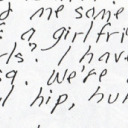 me some
a girlfri
rls? I have
sg. We're
l hip, hu